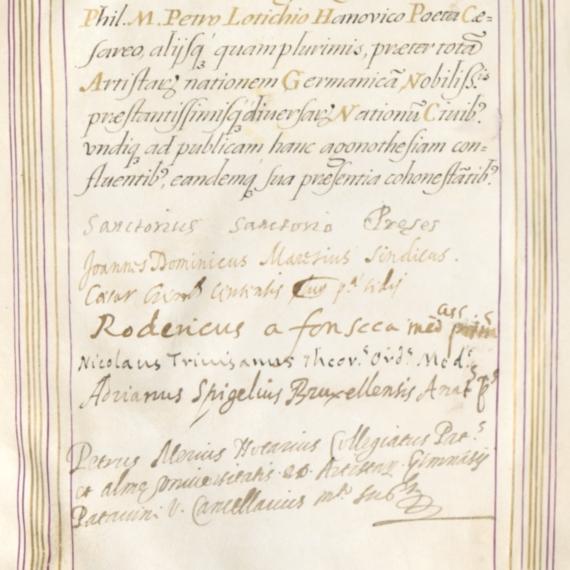 Phil. M. Petro Lotichio Hanovico Poeta Cæ=
sareo, alijsq₃ quam plurimis, præter totā
Artistarꝝ nationem Germanicā, Nobiliss.ⁱˢ
præstantissimisq₃ diversarꝝ Nationū Civib⁹
undiq₃ ad publicam hanc agonothesiam con=
fluentib⁹, eandemq₃ sua præsentia cohonestātib⁹.
Sanctorius Sanctorio Preses
Joannes Dominicus Sindicus.
Cæsar
Rodericus a fonseca med
Nicolaus Trivisanus Theor. Ord. Med.
Adrianus Spigelius Bruxellensis Anat
Petrus Notarius Collegiatus Pat.
et almæ Universitatis Artistarꝝ Gimnasij
Patavini V. Cancellarius